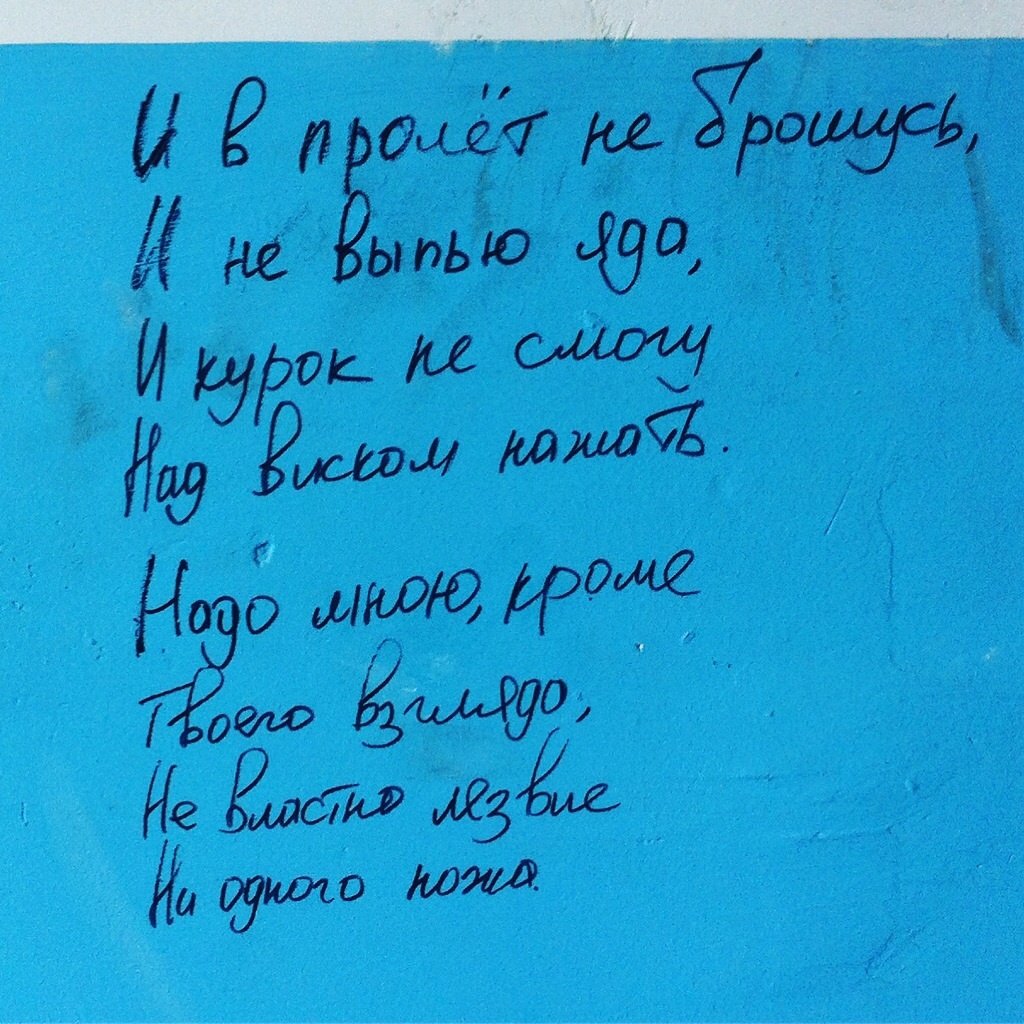 И в пролёт не брошусь,
И не выпью яда,
И курок не смогу
Над виском нажать.
Надо мною, кроме
Твоего взгляда,
Не властно лезвие
Ни одного ножа.